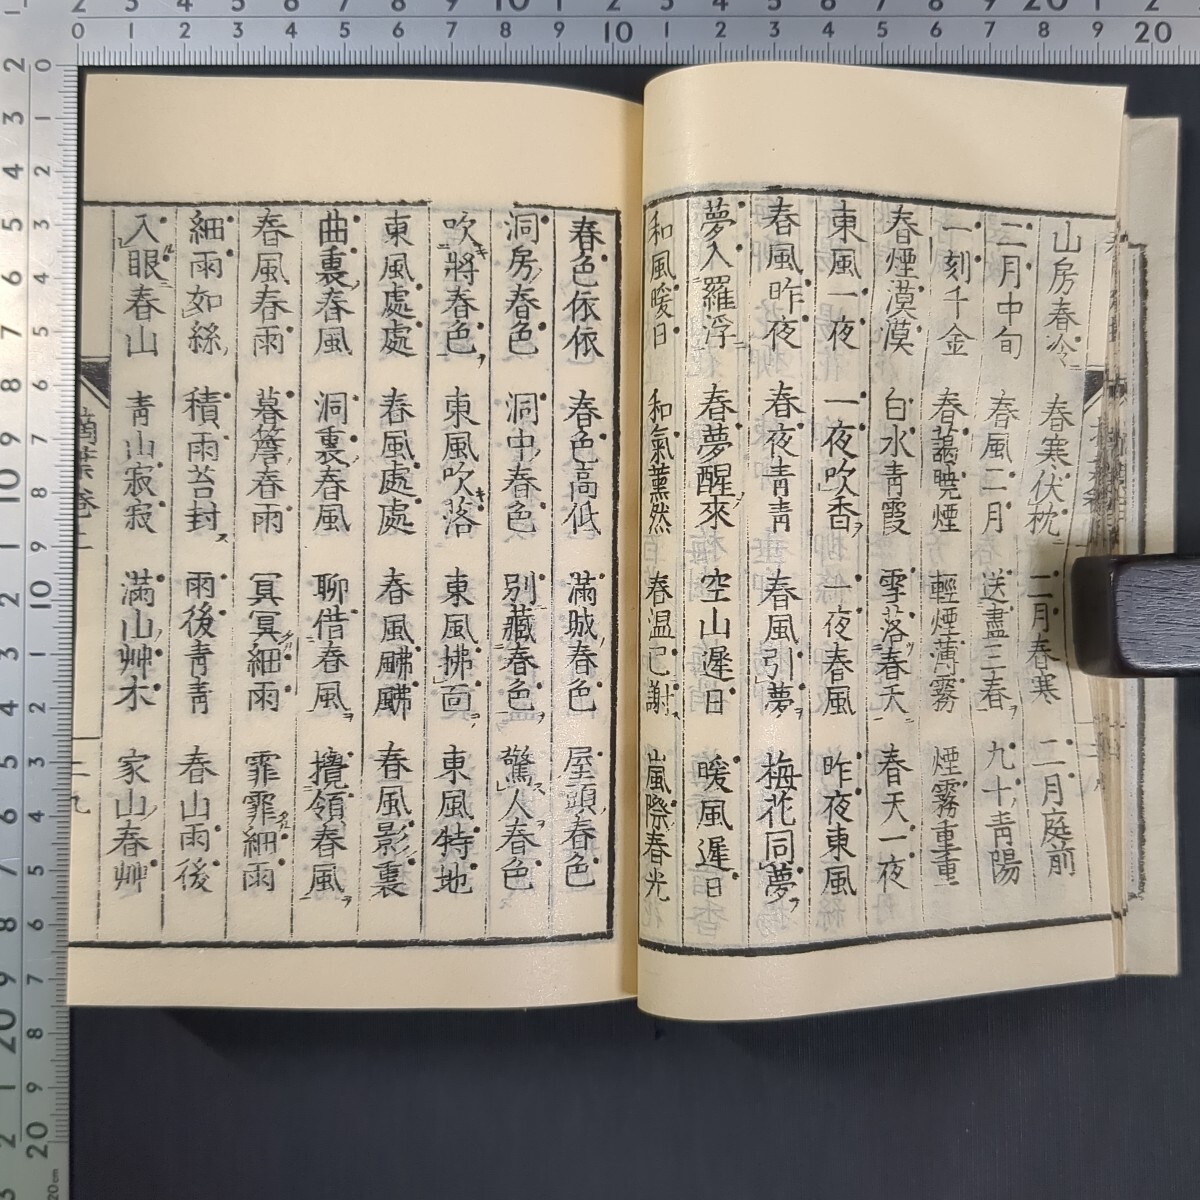 山房春冷 春寒伏枕 二月春寒 二月庭前
二月中旬 春風二月 送盡三春 九十青陽
一刻千金 春靄曉煙 輕煙薄霧 煙霧重重
春煙漠漠 白水青霞 雪落春天 春天一夜
東風一夜 一夜吹香 一夜春風 昨夜東風
春風昨夜 春夜青青 春風引夢 梅花同夢
夢入羅浮 春夢醒來 空山遲日 暖風遲日
和風暖日 和氣薰然 春温已謝 嵐際春光
春色依依 春色高低 滿城春色 屋頭春色
洞房春色 洞中春色 別藏春色 驚人春色
吹將春色 東風吹落 東風拂面 東風特地
東風處處 春風處處 春風颼颼 春風影裏
曲裏春風 洞裏春風 聊借春風 攬領春風
春風春雨 暮簷春雨 冥冥細雨 霏霏細雨
細雨如絲 積雨苔封 雨後青青 春山雨後
入眼春山 青山寂寂 滿山艸木 家山春艸
二九